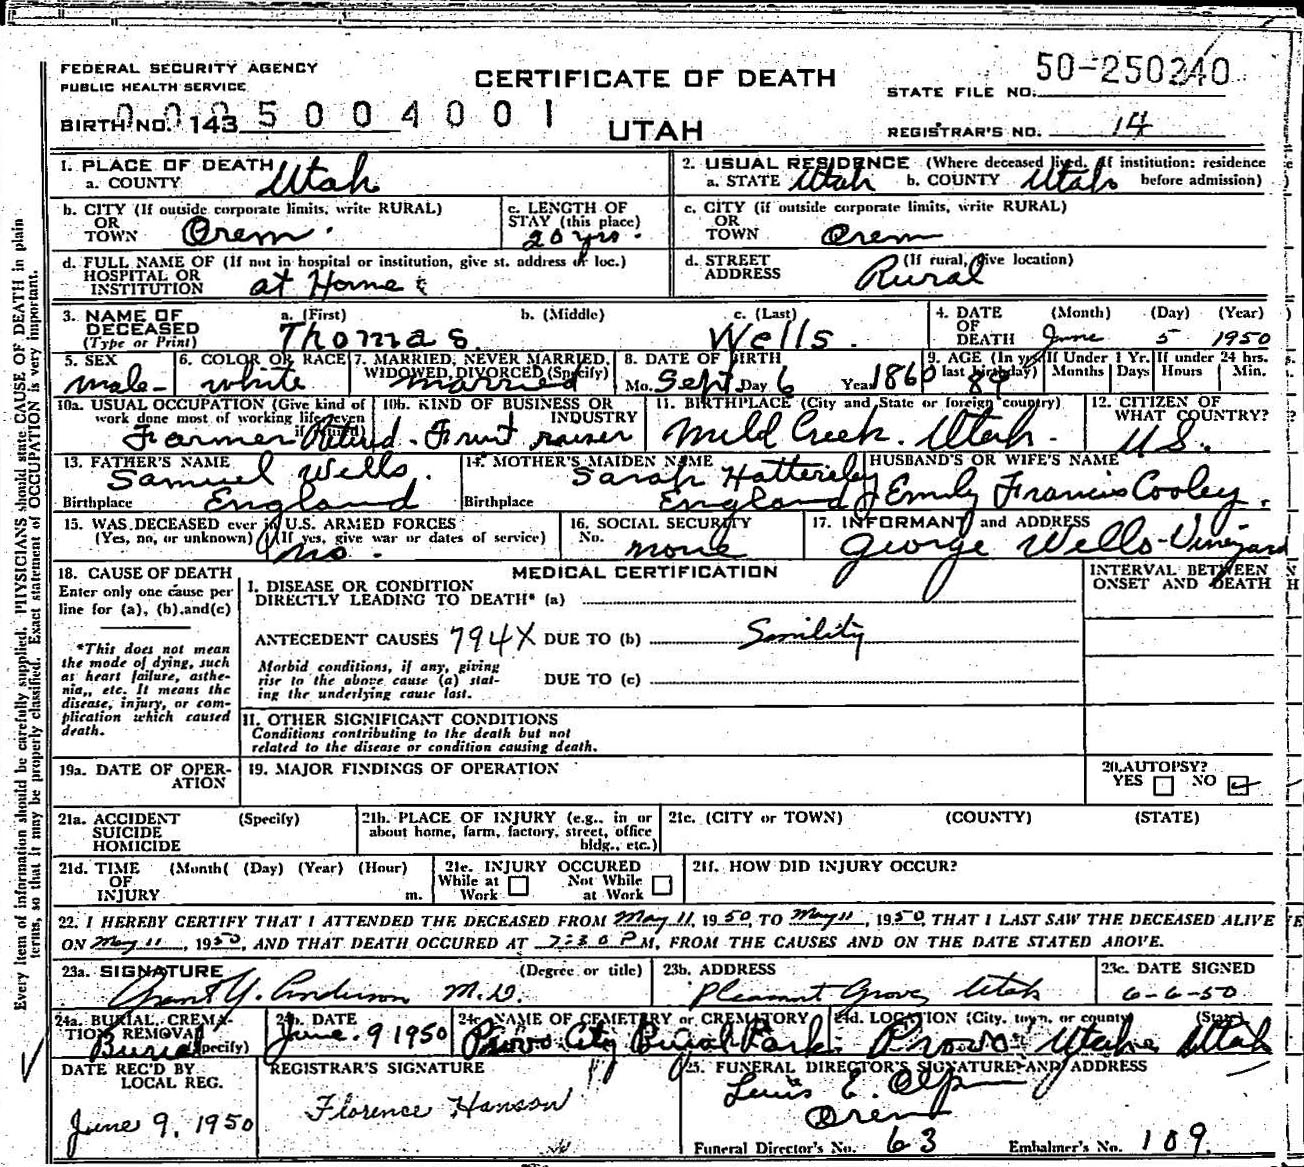 FEDERAL SECURITY AGENCY
PUBLIC HEALTH SERVICE
CERTIFICATE OF DEATH
UTAH
50-250240
STATE FILE NO.
BIRTH NO. 143
0005004001
REGISTRAR'S NO. 14
1. PLACE OF DEATH
a. COUNTY Utah
2. USUAL RESIDENCE (Where deceased lived. If institution: residence
a. STATE Utah b. COUNTY Utah before admission)
b. CITY (If outside corporate limits, write RURAL)
OR
TOWN Orem.
c. LENGTH OF
STAY (this place)
20 yrs.
c. CITY (if outside corporate limits, write RURAL)
OR
TOWN Orem
d. FULL NAME OF (If not in hospital or institution, give st. address or loc.)
HOSPITAL OR
INSTITUTION at Home
d. STREET (If rural, give location)
ADDRESS Rural
3. NAME OF DECEASED
(Type or Print)
a. (First) b. (Middle) c. (Last)
Thomas Wells.
4. DATE OF DEATH
(Month) (Day) (Year)
June 5 1950
5. SEX
male
6. COLOR OR RACE
white
7. MARRIED, NEVER MARRIED,
WIDOWED, DIVORCED (Specify)
married
8. DATE OF BIRTH
Mo. Sept Day 6 Year 1860
9. AGE (In yrs. last birthday) 89
If Under 1 Yr. Months Days
If under 24 hrs. Hours Min.
10a. USUAL OCCUPATION (Give kind of
work done most of working life, even
if retired)
Farmer Retired
10b. KIND OF BUSINESS OR
INDUSTRY
Fruit raiser
11. BIRTHPLACE (City and State or foreign country)
Mill Creek. Utah.
12. CITIZEN OF
WHAT COUNTRY?
U.S.
13. FATHER'S NAME
Samuel Wells.
Birthplace England
14. MOTHER'S MAIDEN NAME
Sarah Hattersley
Birthplace England
HUSBAND'S OR WIFE'S NAME
Emily Francis Cooley.
15. WAS DECEASED ever in U.S. ARMED FORCES
(Yes, no, or unknown) (If yes, give war or dates of service)
no.
16. SOCIAL SECURITY
No. none
17. INFORMANT and ADDRESS
George Wells - Vineyard
18. CAUSE OF DEATH
Enter only one cause per
line for (a), (b), and (c)
*This does not mean
the mode of dying, such
as heart failure, asthe-
nia,, etc. It means the
disease, injury, or com-
plication which caused
death.
MEDICAL CERTIFICATION
INTERVAL BETWEEN
ONSET AND DEATH
I. DISEASE OR CONDITION
DIRECTLY LEADING TO DEATH* (a)
ANTECEDENT CAUSES 794X DUE TO (b) Senility
Morbid conditions, if any, giving
rise to the above cause (a) stat-
ing the underlying cause last.
DUE TO (c)
II. OTHER SIGNIFICANT CONDITIONS
Conditions contributing to the death but not
related to the disease or condition causing death.
19a. DATE OF OPER-
ATION
19. MAJOR FINDINGS OF OPERATION
20. AUTOPSY?
YES NO
21a. ACCIDENT (Specify)
SUICIDE
HOMICIDE
21b. PLACE OF INJURY (e.g., in or
about home, farm, factory, street, office
bldg., etc.)
21c. (CITY or TOWN) (COUNTY) (STATE)
21d. TIME (Month( (Day) (Year) (Hour)
OF
INJURY m.
21e. INJURY OCCURED
While at Work Not While at Work
21f. HOW DID INJURY OCCUR?
22. I HEREBY CERTIFY THAT I ATTENDED THE DECEASED FROM May 11, 1950, TO May 11, 1950, THAT I LAST SAW THE DECEASED ALIVE
ON May 11, 1950, AND THAT DEATH OCCURED AT 7:30 P M, FROM THE CAUSES AND ON THE DATE STATED ABOVE.
23a. SIGNATURE (Degree or title)
Grant Y. Anderson M.D.
23b. ADDRESS
Pleasant Grove, Utah
23c. DATE SIGNED
6-6-50
24a. BURIAL, CREMA-
TION, REMOVAL
(Specify)
Burial
24b. DATE
June. 9 1950
24c. NAME OF CEMETERY or CREMATORY
Provo City Burial Park.
24d. LOCATION (City, town, or county) (State)
Provo Utah Utah
DATE REC'D BY
LOCAL REG.
June 9, 1950
REGISTRAR'S SIGNATURE
Florence Hanson
25. FUNERAL DIRECTOR'S SIGNATURE AND ADDRESS
E. Olpin
Orem
Funeral Director's No. 63 Embalmer's No. 109.
Every item of information should be carefully supplied. PHYSICIANS should state CAUSE OF DEATH in plain
terms, so that it may be properly classified. Exact statement of OCCUPATION is very important.